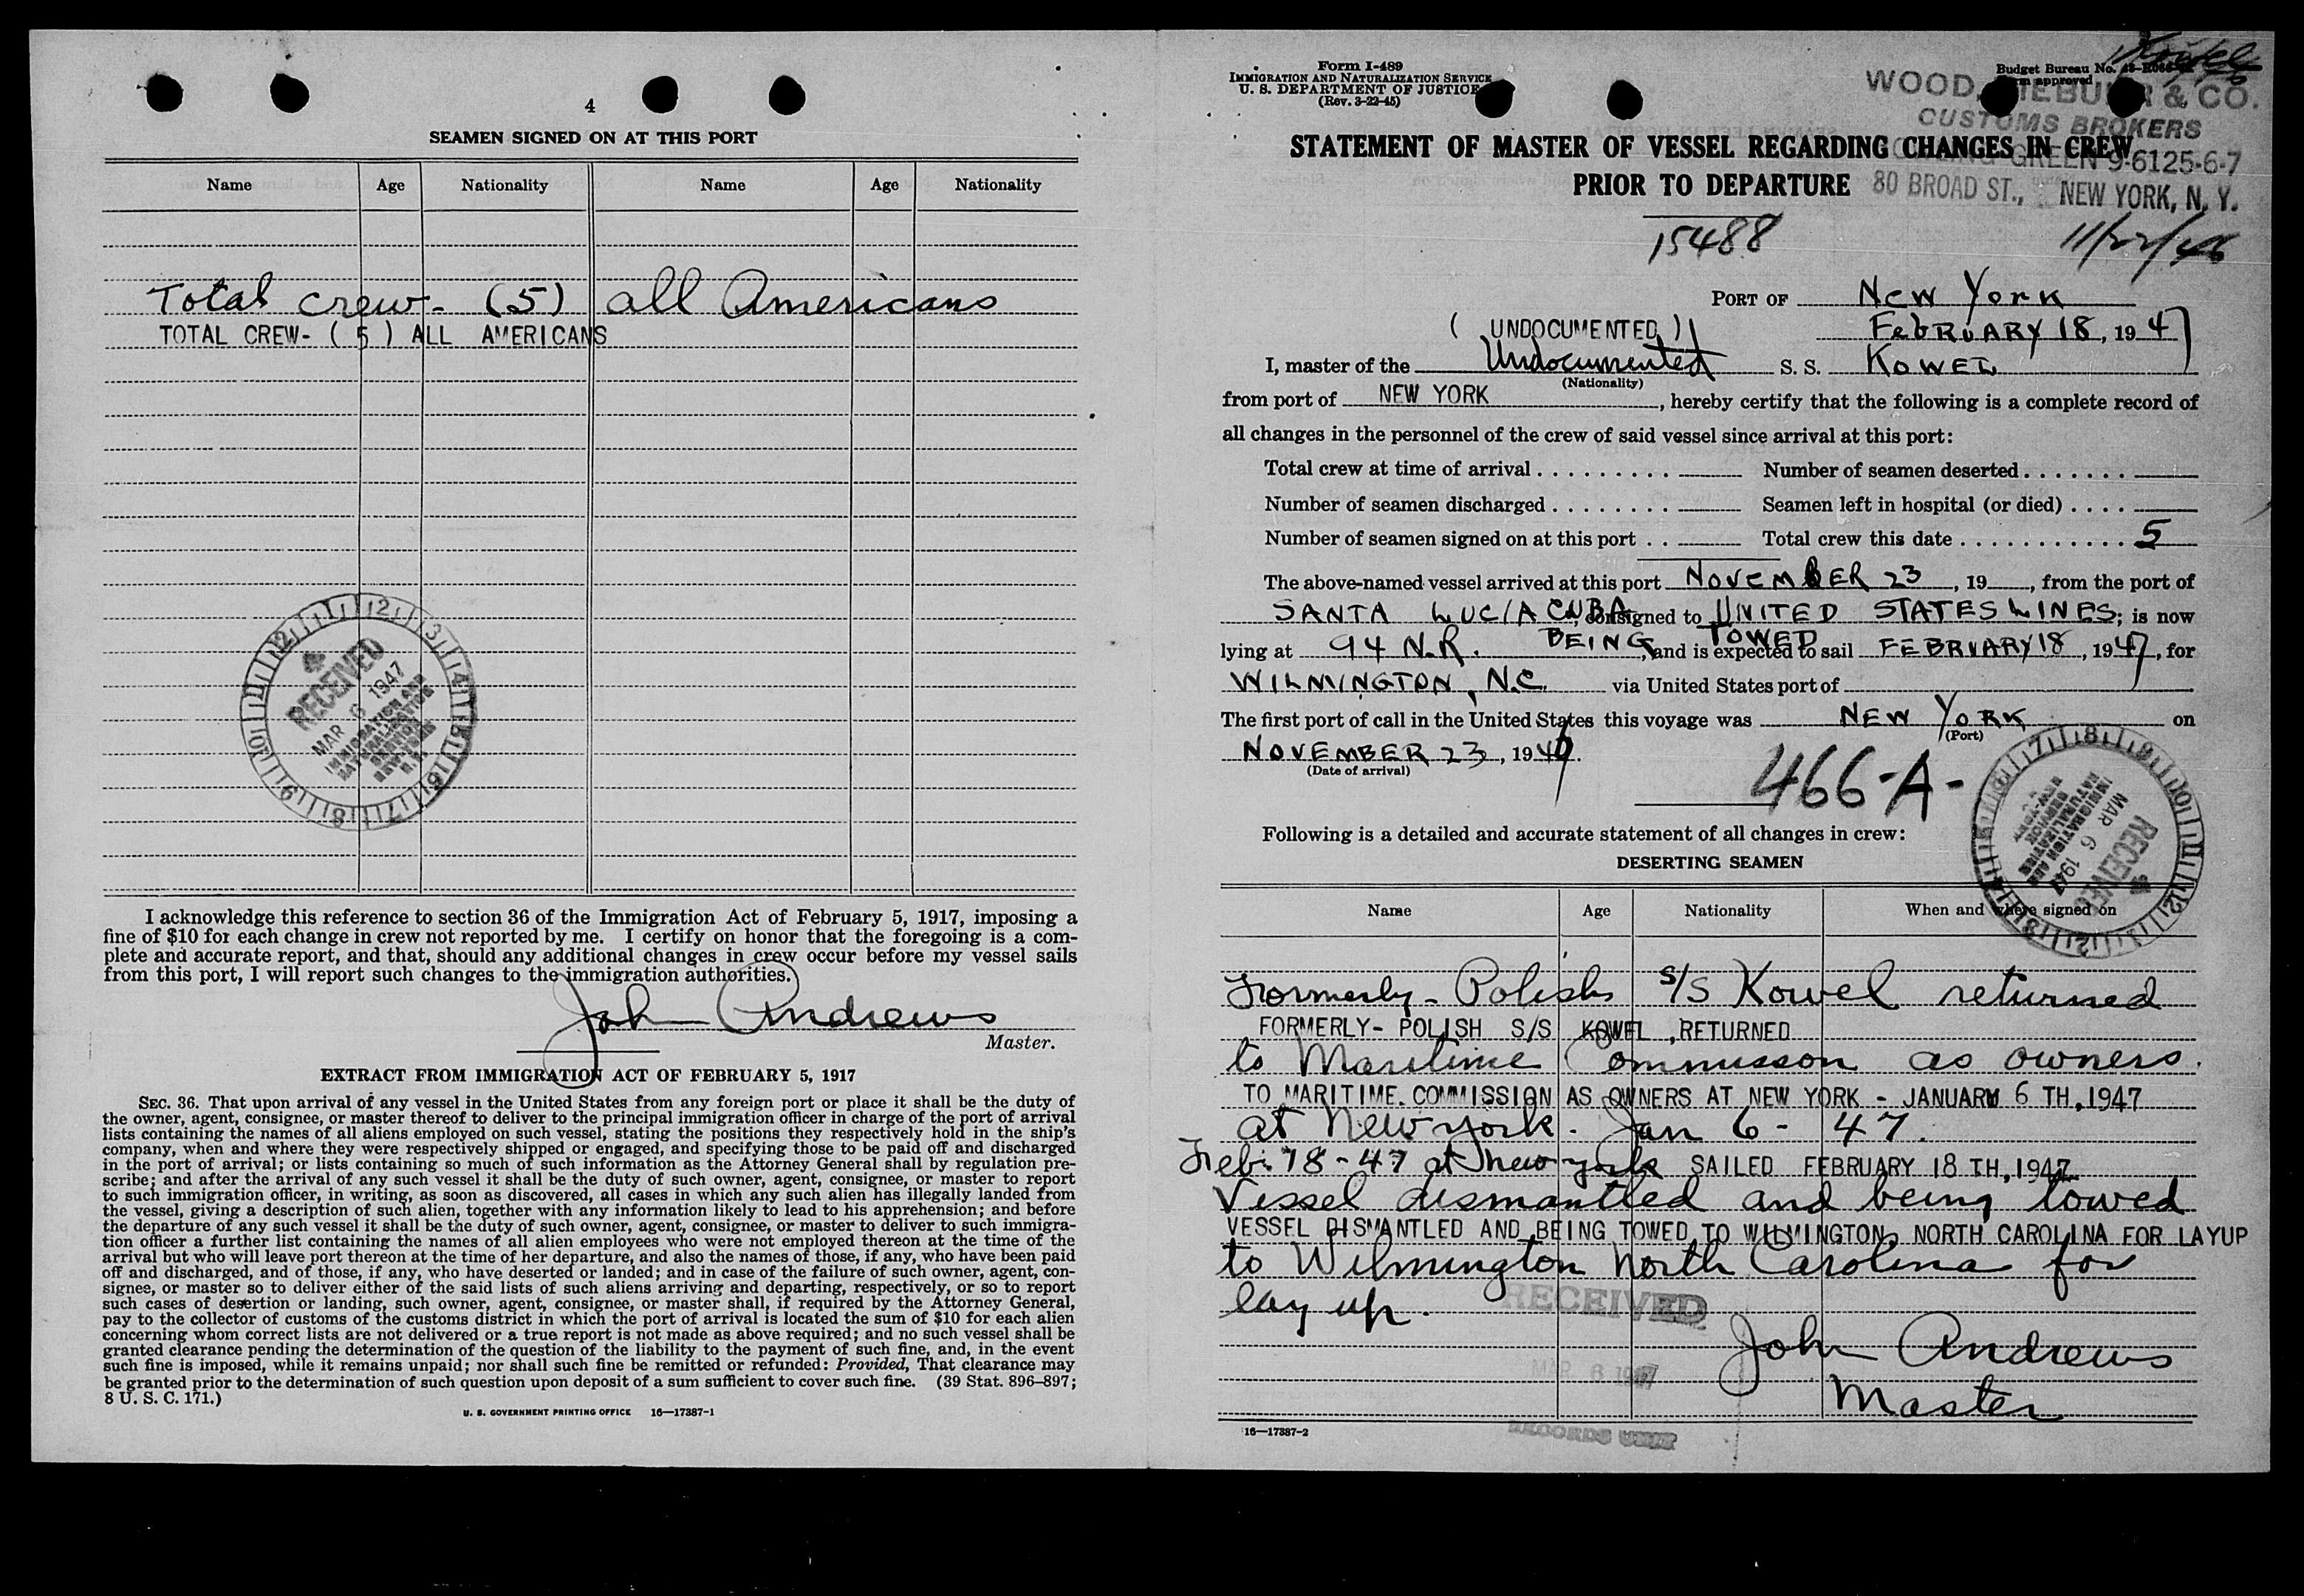 4
SEAMEN SIGNED ON AT THIS PORT
Name Age Nationality Name Age Nationality
Total crew- (5) all Americans
TOTAL CREW- ( 5 ) ALL AMERICANS
RECEIVED
MAR 6 1947
IMMIGRATION AND
NATURALIZATION
SERVICE
I acknowledge this reference to section 36 of the Immigration Act of February 5, 1917, imposing a
fine of $10 for each change in crew not reported by me. I certify on honor that the foregoing is a com-
plete and accurate report, and that, should any additional changes in crew occur before my vessel sails
from this port, I will report such changes to the immigration authorities.
John Andrews
Master.
EXTRACT FROM IMMIGRATION ACT OF FEBRUARY 5, 1917
SEC. 36. That upon arrival of any vessel in the United States from any foreign port or place it shall be the duty of
the owner, agent, consignee, or master thereof to deliver to the principal immigration officer in charge of the port of arrival
lists containing the names of all aliens employed on such vessel, stating the positions they respectively hold in the ship's
company, when and where they were respectively shipped or engaged, and specifying those to be paid off and discharged
in the port of arrival; or lists containing so much of such information as the Attorney General shall by regulation pre-
scribe; and after the arrival of any such vessel it shall be the duty of such owner, agent, consignee, or master to report
to such immigration officer, in writing, as soon as discovered, all cases in which any such alien has illegally landed from
the vessel, giving a description of such alien, together with any information likely to lead to his apprehension; and before
the departure of any such vessel it shall be the duty of such owner, agent, consignee, or master to deliver to such immigra-
tion officer a further list containing the names of all alien employees who were not employed thereon at the time of the
arrival but who will leave port thereon at the time of her departure, and also the names of those, if any, who have been paid
off and discharged, and of those, if any, who have deserted or landed; and in case of the failure of such owner, agent, con-
signee, or master so to deliver either of the said lists of such aliens arriving and departing, respectively, or so to report
such cases of desertion or landing, such owner, agent, consignee, or master shall, if required by the Attorney General,
pay to the collector of customs of the customs district in which the port of arrival is located the sum of $10 for each alien
concerning whom correct lists are not delivered or a true report is not made as above required; and no such vessel shall be
granted clearance pending the determination of the question of the liability to the payment of such fine, and, in the event
such fine is imposed, while it remains unpaid; nor shall such fine be remitted or refunded: Provided, That clearance may
be granted prior to the determination of such question upon deposit of a sum sufficient to cover such fine. (39 Stat. 896–897;
8 U. S. C. 171.)
U. S. GOVERNMENT PRINTING OFFICE 16—17387-1
Form I-489
IMMIGRATION AND NATURALIZATION SERVICE
U. S. DEPARTMENT OF JUSTICE
(Rev. 3-22-45)
Budget Bureau No.
approved
WOOD, & CO.
CUSTOMS BROKERS
GREEN 9-6125-6-7
80 BROAD ST., NEW YORK, N. Y.
STATEMENT OF MASTER OF VESSEL REGARDING CHANGES IN CREW
PRIOR TO DEPARTURE
15488
11/22/46
PORT OF New York
( UNDOCUMENTED ) FebRUARY 18, 1947
I, master of the Undocumented S. S. KOWEL
(Nationality)
from port of NEW YORK, hereby certify that the following is a complete record of
all changes in the personnel of the crew of said vessel since arrival at this port:
Total crew at time of arrival . . . . . . . . . Number of seamen deserted . . . . . . .
Number of seamen discharged . . . . . . . . Seamen left in hospital (or died) . . . .
Number of seamen signed on at this port . . Total crew this date . . . . . . . . . . . . 5
The above-named vessel arrived at this port NOVEMBER 23, 19 , from the port of
SANTA LUCIA CUBA, consigned to UNITED STATES LINES; is now
lying at 94 N.R. BEING TOWED, and is expected to sail FEBRUARY 18, 1947, for
WILMINGTON, N.C. via United States port of
The first port of call in the United States this voyage was NEW YORK on
(Port)
NOVEMBER 23, 1946.
(Date of arrival)
466-A-
RECEIVED
MAR 6 1947
IMMIGRATION AND
NATURALIZATION
SERVICE
NEW YORK
Following is a detailed and accurate statement of all changes in crew:
DESERTING SEAMEN
Name Age Nationality When and where signed on
Formerly - Polish s/s Kowel returned
FORMERLY- POLISH S/S KOWEL ,RETURNED
to Maritime Commisson as owners.
TO MARITIME. COMMISSION AS OWNERS AT NEW YORK - JANUARY 6 TH,1947
at New york - Jan 6 - 47.
Feb. 18-47 at New york SAILED FEBRUARY 18 TH,1947
Vessel dismantled and being towed
VESSEL DISMANTLED AND BEING TOWED TO WILMINGTON, NORTH CAROLINA FOR LAYUP
to Wilmington North Carolina for
lay up.
RECEIVED
John Andrews
MAR 6 1947
Master
16—17387-2
RECORDS UNIT